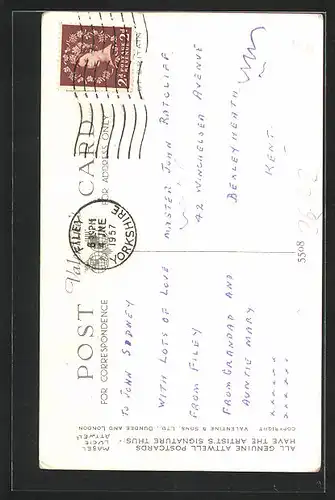 POST CARD
FOR CORRESPONDENCE
FOR ADDRESS ONLY
TO JOHN SYDNEY
WITH LOTS OF LOVE
FROM FILEY
FROM GRANDAD AND
AUNTIE MARY
x x x x x x
MASTER JOHN RATCLIFF
42 WINCHELSEA AVENUE
BEXLEYHEATH
KENT
POSTAGE REVENUE
2D 2D
FILEY
6 PM
JNE
1957
YORKSHIRE
5508
ALL GENUINE ATTWELL POSTCARDS
HAVE THE ARTIST'S SIGNATURE THUS:-
MABEL
LUCIE
ATTWELL
COPYRIGHT VALENTINE & SONS, LTD., DUNDEE AND LONDON